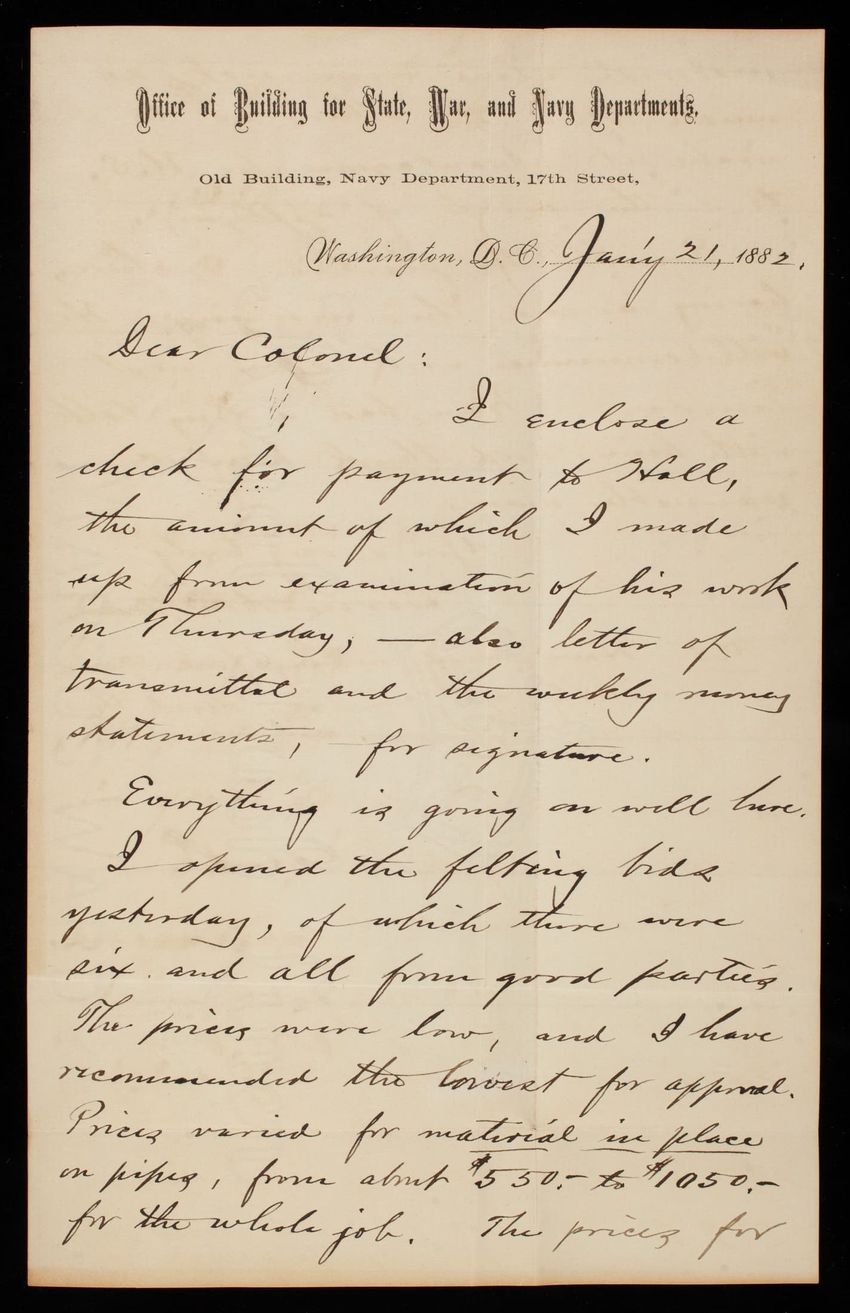 Office of Building for State, War, and Navy Departments,
Old Building, Navy Department, 17th Street,
Washington, D. C., Jan'y 21, 1882.
Dear Colonel :
I enclose a
check for payment to Hall,
the amount of which I made
up from examination of his work
on Thursday, — also letter of
transmittal and the weekly money
statements, for signature.
Everything is going on well here.
I opened the felting bids
yesterday, of which there were
six and all from good parties.
The prices were low, and I have
recommended the lowest for approval.
Prices varied for material in place
on pipes, from about $550.- to $1050.-
for the whole job. The prices for